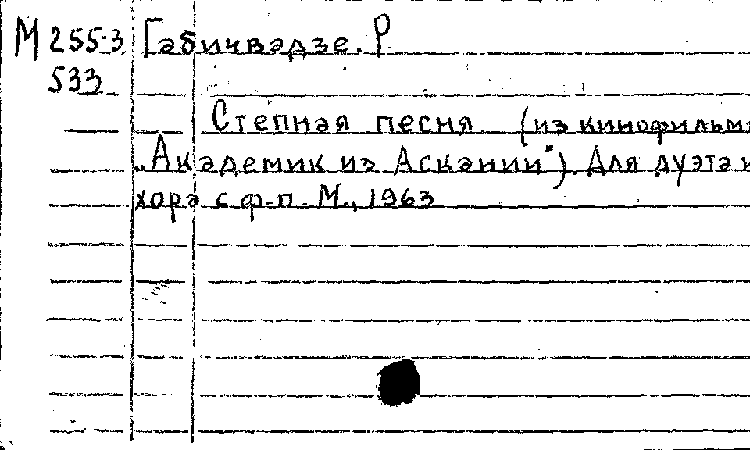 М 255-3 Габичвадзе. Р
533
Степная песня (из кинофильма
„Академик из Аскании"). Для дуэта и
хора с ф-п. М., 1963